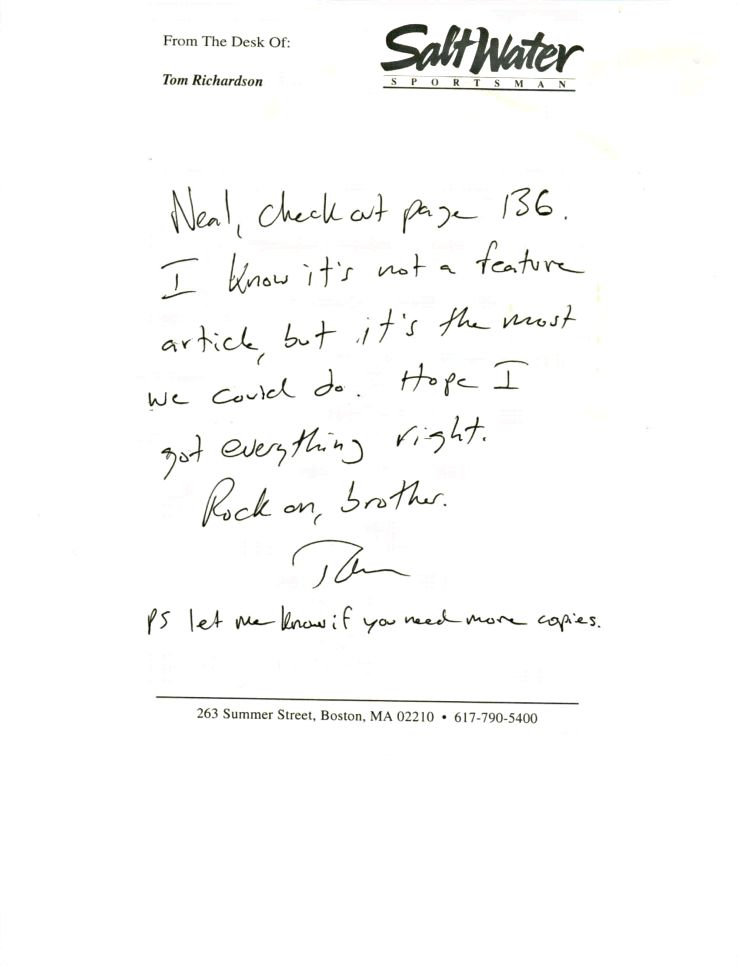 From The Desk Of:
Tom Richardson
Salt Water
SPORTSMAN
Neal, check out page 136.
I know it's not a feature
article, but it's the most
we could do. Hope I
got everything right.
Rock on, brother.
Tom
PS let me know if you need more copies.
263 Summer Street, Boston, MA 02210 • 617-790-5400